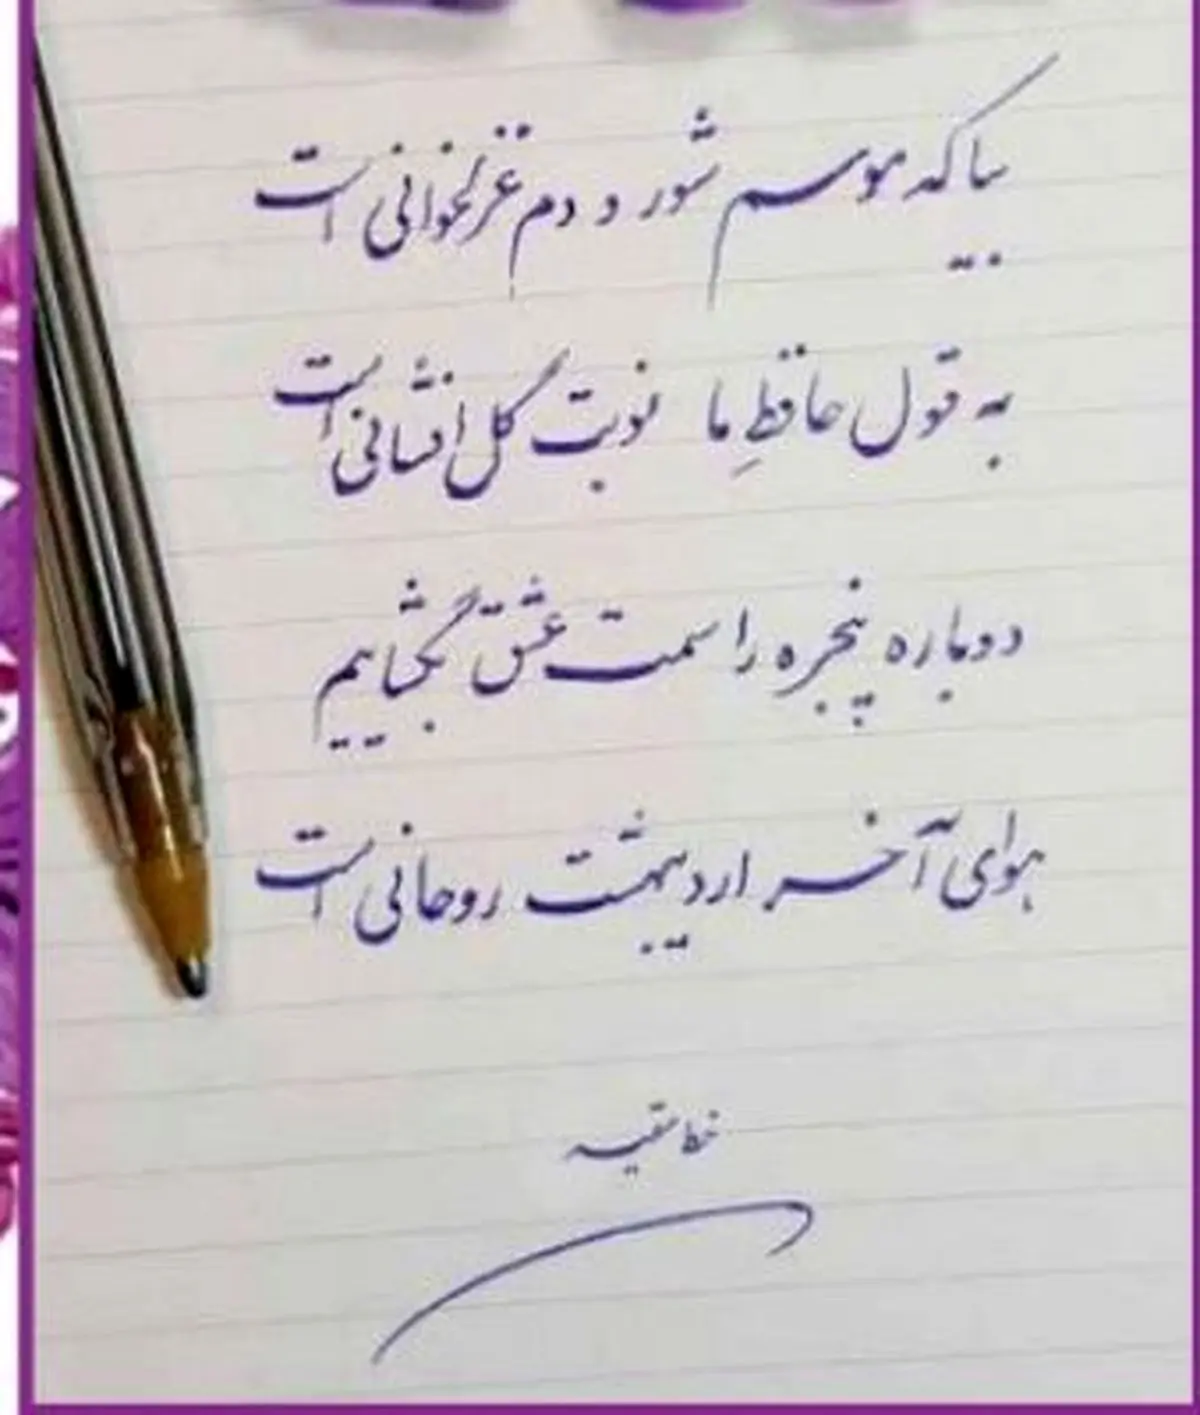 بیا که موسم شور و دم غزلخوانی است
به قول حافظِ ما نوبت گل افشانی است
دوباره پنجره را سمت عشق بگشاییم
هوای آخر اردیبهشت روحانی است
خط